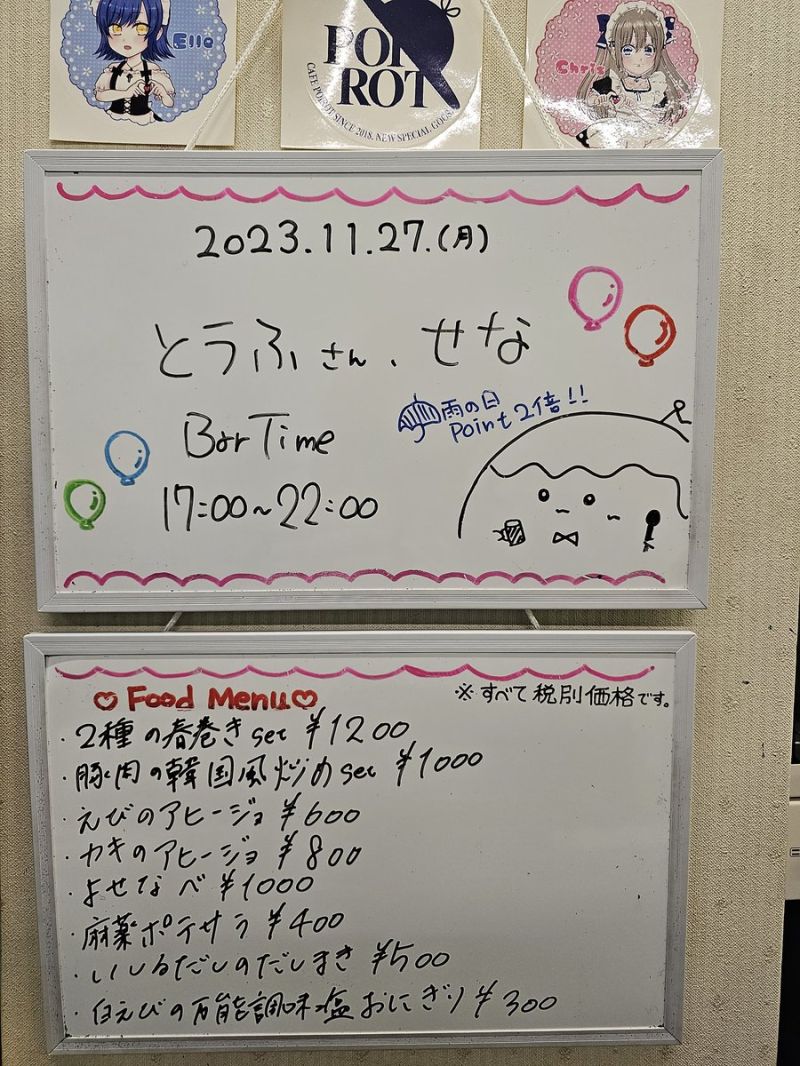 Elle
POI
ROT
CAFE POIROT SINCE 2018. NEW SPECIAL
Chris
2023.11.27.(月)
とうふさん、せな
雨の日
Point 2倍!!
Bar Time
17:00~22:00
♡ Food Menu ♡
※すべて税別価格です。
・2種の春巻き set ¥1200
・豚肉の韓国風炒め set ¥1000
・えびのアヒージョ ¥600
・カキのアヒージョ ¥800
・よせなべ ¥1000
・麻薬ポテサラ ¥400
・いしるだしのだしまき ¥500
・白えびの万能調味塩おにぎり ¥300